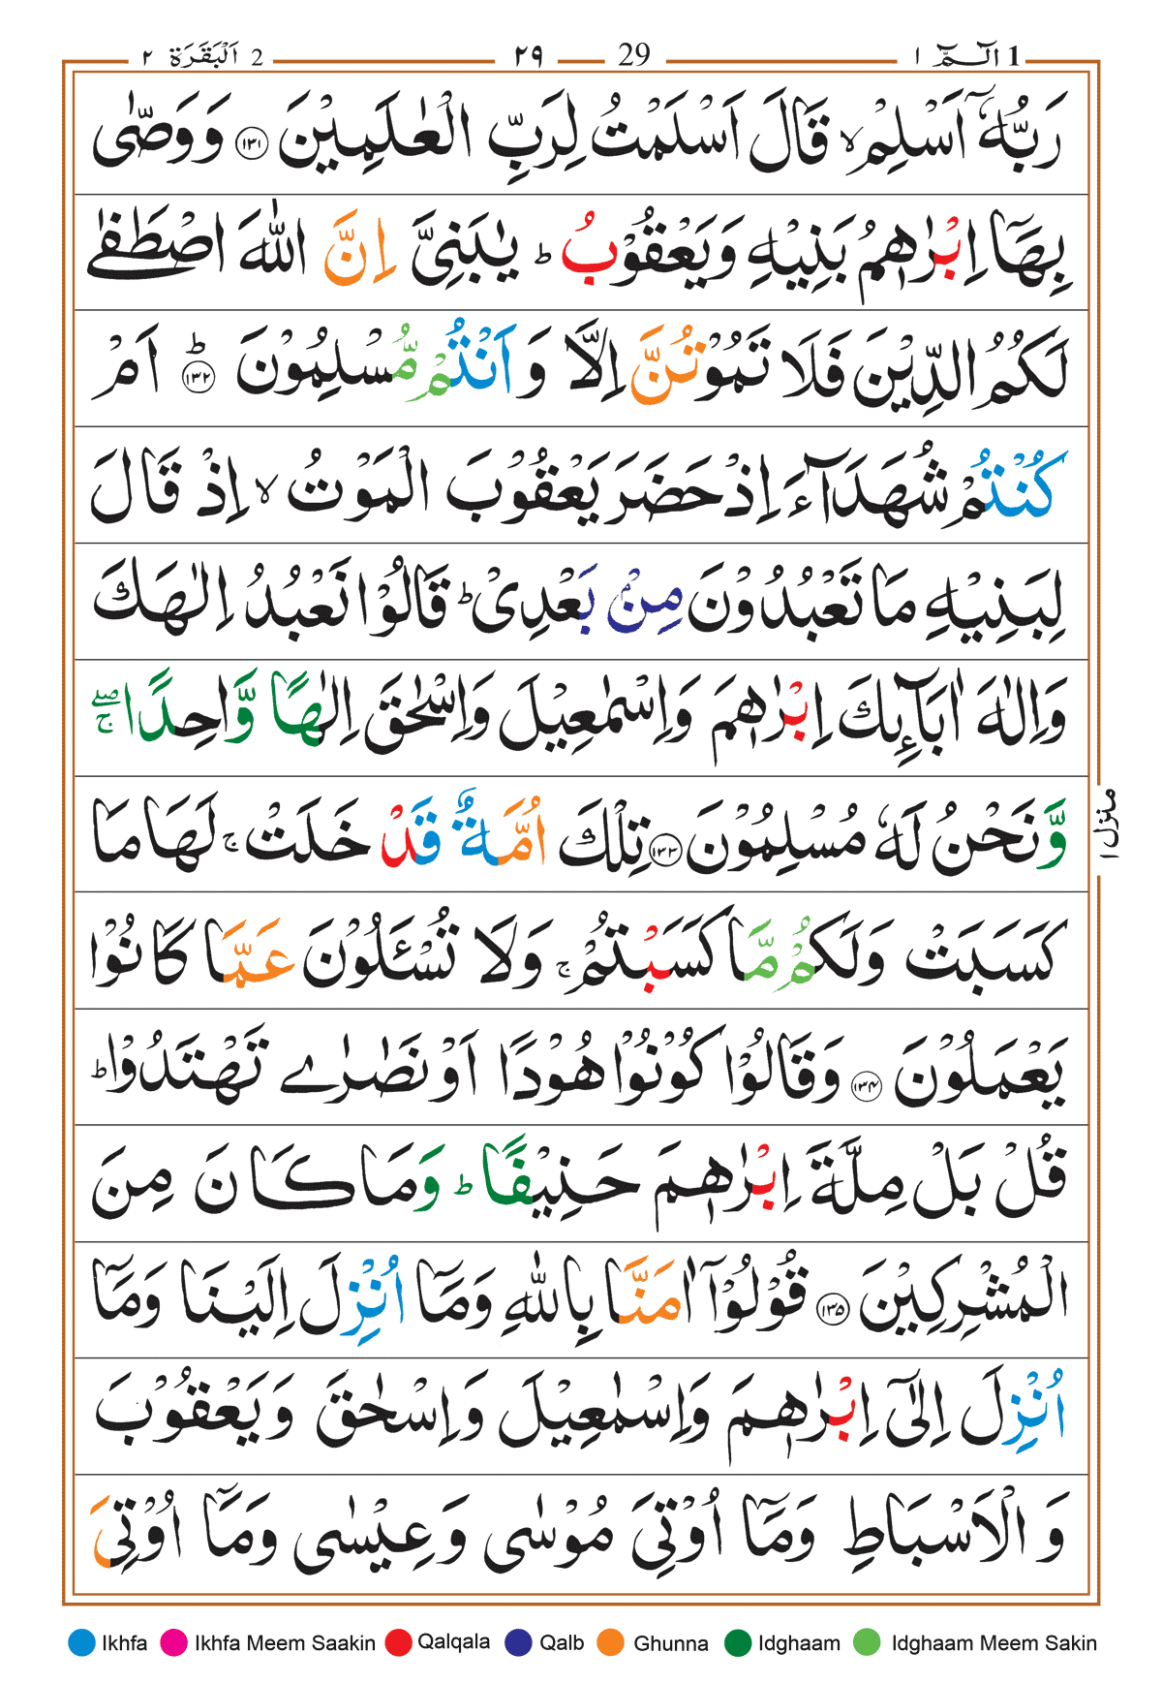 1 الٓـمّٓ ١ 29 ٢٩ 2 اَلْبَقَرَة ٢
رَبُّهٗۤ اَسْلِمْ ۙ قَالَ اَسْلَمْتُ لِرَبِّ الْعٰلَمِيْنَ ﴿۱۳۱﴾ وَوَصّٰى
بِهَاۤ اِبْرٰهٖمُ بَنِيْهِ وَيَعْقُوْبُ ؕ يٰبَنِىَّ اِنَّ اللّٰهَ اصْطَفٰى
لَكُمُ الدِّيْنَ فَلَا تَمُوْتُنَّ اِلَّا وَاَنْتُمْ مُّسْلِمُوْنَ ؕ ﴿۱۳۲﴾ اَمْ
كُنْتُمْ شُهَدَآءَ اِذْ حَضَرَ يَعْقُوْبَ الْمَوْتُ ۙ اِذْ قَالَ
لِبَنِيْهِ مَا تَعْبُدُوْنَ مِنْۢ بَعْدِىْ ؕ قَالُوْا نَعْبُدُ اِلٰهَكَ
وَاِلٰهَ اٰبَآٮِٕكَ اِبْرٰهٖمَ وَاِسْمٰعِيْلَ وَاِسْحٰقَ اِلٰهًا وَّاحِدًا ۖۚ
وَّنَحْنُ لَهٗ مُسْلِمُوْنَ ﴿۱۳۳﴾ تِلْكَ اُمَّةٌ قَدْ خَلَتْ ۚ لَهَا مَا
كَسَبَتْ وَلَكُمْ مَّا كَسَبْتُمْ ۚ وَلَا تُسْـَٔلُوْنَ عَمَّا كَانُوْا
يَعْمَلُوْنَ ﴿۱۳۴﴾ وَقَالُوْا كُوْنُوْا هُوْدًا اَوْ نَصٰرٰے تَهْتَدُوْا ؕ
قُلْ بَلْ مِلَّةَ اِبْرٰهٖمَ حَنِيْفًا ؕ وَمَا كَانَ مِنَ
الْمُشْرِكِيْنَ ﴿۱۳۵﴾ قُوْلُوْۤا اٰمَنَّا بِاللّٰهِ وَمَاۤ اُنْزِلَ اِلَيْنَا وَمَاۤ
اُنْزِلَ اِلٰٓى اِبْرٰهٖمَ وَاِسْمٰعِيْلَ وَاِسْحٰقَ وَيَعْقُوْبَ
وَالْاَسْبَاطِ وَمَاۤ اُوْتِىَ مُوْسٰى وَعِيْسٰى وَمَاۤ اُوْتِىَ
منزل ١
Ikhfa Ikhfa Meem Saakin Qalqala Qalb Ghunna Idghaam Idghaam Meem Sakin